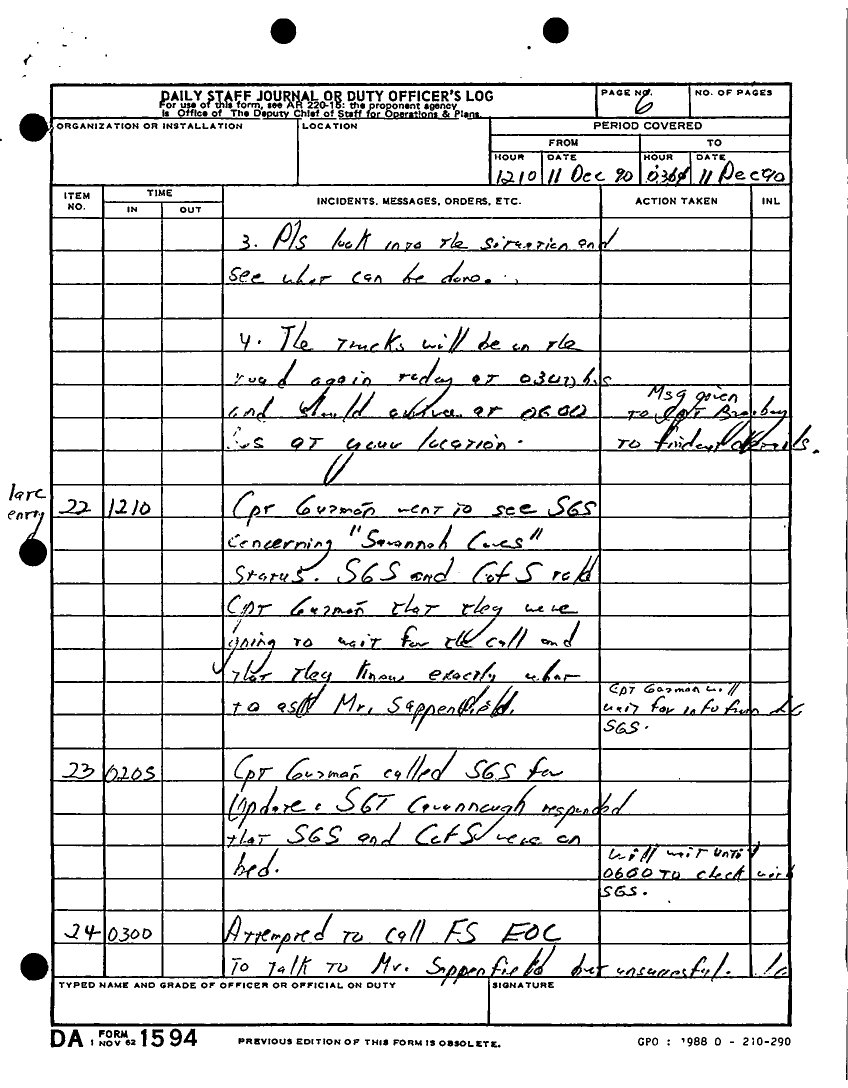 DAILY STAFF JOURNAL OR DUTY OFFICER'S LOG
For use of this form, see AR 220-15: the proponent agency
is Office of The Deputy Chief of Staff for Operations & Plans.
PAGE NO.
6
NO. OF PAGES
ORGANIZATION OR INSTALLATION
LOCATION
PERIOD COVERED
FROM
TO
HOUR
DATE
HOUR
DATE
1210
11 Dec 90
0300
11 Dec 90
ITEM NO.
TIME
IN
OUT
INCIDENTS, MESSAGES, ORDERS, ETC.
ACTION TAKEN
INL
3. Pls look into the situation and
see what can be done.
4. The trucks will be on the
road again today at 0300 hrs
and should arrive at 0600
hrs at your location.
Msg given
to CPT
to find out details.
late
entry
22
1210
Cpt Guzman went to see SGS
concerning "Savannah Cares"
status. SGS and CofS told
Cpt Guzman that they were
going to wait for the call and
that they know exactly what
to ask Mr. Sappenfield.
CPT Guzman will
wait for info from
SGS.
23
0205
Cpt Guzman called SGS for
Update: SGT Cavannough responded
that SGS and CofS were on
bed.
Will wait until
0600 to check with
SGS.
24
0300
Attempted to call FS EOC
To talk to Mr. Sappenfield but unsuccessful.
TYPED NAME AND GRADE OF OFFICER OR OFFICIAL ON DUTY
SIGNATURE
DA FORM 1 NOV 62 1594
PREVIOUS EDITION OF THIS FORM IS OBSOLETE.
GPO : 1988 O - 210-290